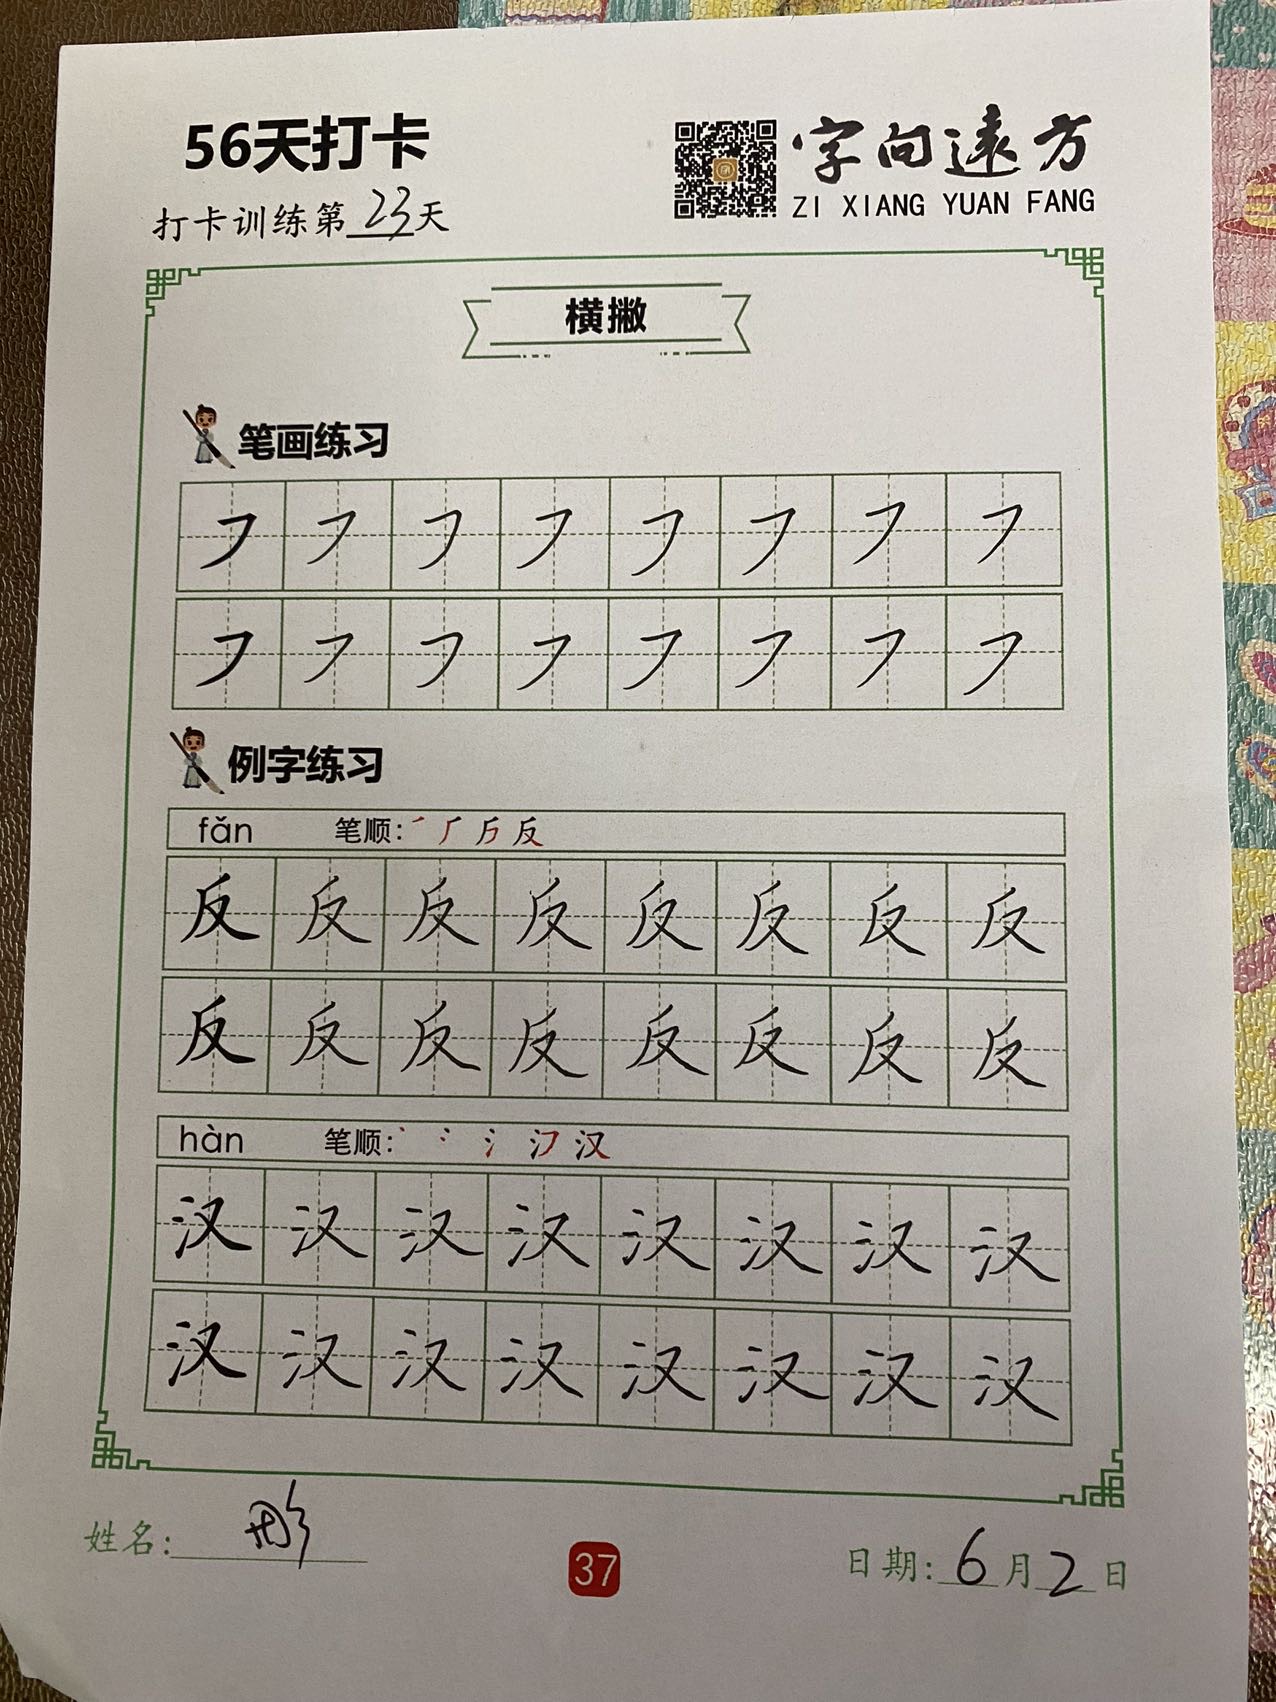 56天打卡
字向远方
ZI XIANG YUAN FANG
打卡训练第23天
横撇
笔画练习
㇇ ㇇ ㇇ ㇇ ㇇ ㇇ ㇇ ㇇
㇇ ㇇ ㇇ ㇇ ㇇ ㇇ ㇇ ㇇
例字练习
fǎn 笔顺: 反
反 反 反 反 反 反 反 反
反 反 反 反 反 反 反 反
hàn 笔顺: 汉
汉 汉 汉 汉 汉 汉 汉 汉
汉 汉 汉 汉 汉 汉 汉 汉
姓名:
37
日期: 6月2日